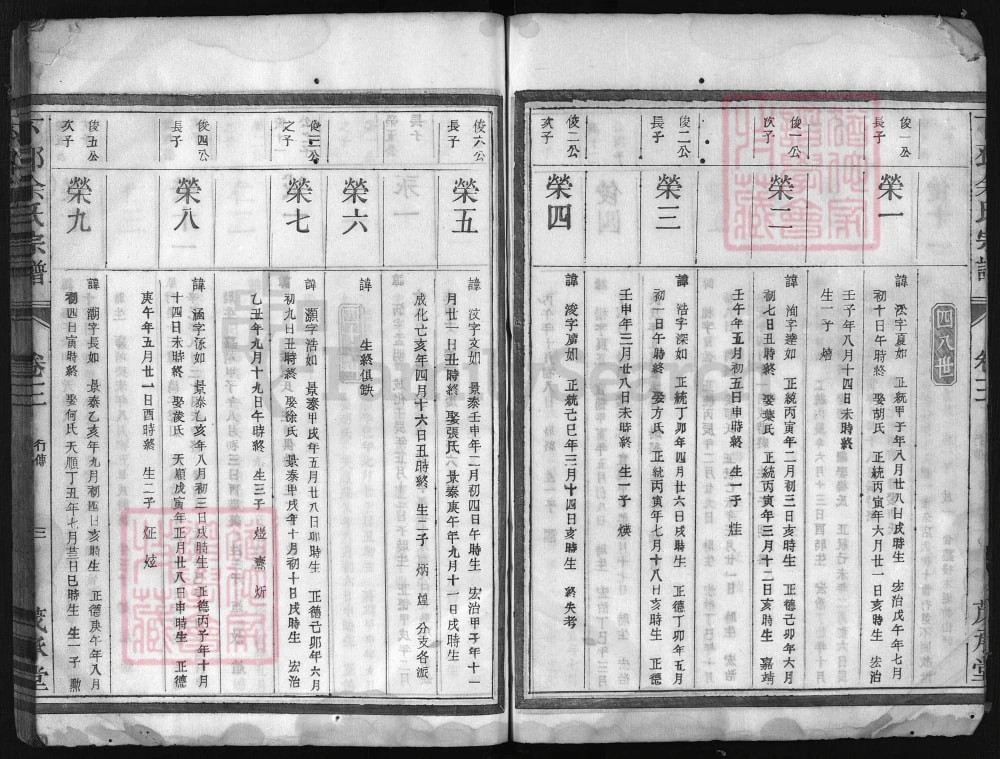 四八世
俊一公
長子
榮一
諱 字夏如 正統甲子年八月廿八日戌時生 宏治戊午年七月
初十日午時終 娶胡氏 正統丙寅年六月廿一日亥時生 宏治
壬子年八月十四日未時終
生一子
俊一公
次子
榮二
諱 洵字達如 正統丙寅年二月初三日亥時生 正德己卯年六月
初七日丑時終 娶葉氏 正統丙寅年三月十二日亥時生 嘉靖
壬午年五月初五日申時終 生一子 烓
俊二公
長子
榮三
諱 浩字深如 正統丁卯年四月廿六日戌時生 正德丁卯年五月
初一日午時終 娶方氏 正統丙寅年七月十八日亥時生 正德
壬申年三月廿八日未時終 生一子
俊二公
次子
榮四
諱 浚字廣如 正統己巳年三月十四日亥時生 終失考
俊六公
長子
榮五
諱 汶字文如 景泰壬申年二月初四日午時生 宏治甲子年十一
月廿一日丑時終 娶張氏六 景泰庚午年九月十一日戌時生
成化丁亥年四月十六日丑時終 生二子 炳 煌 分支各派
榮六
諱
生終俱缺
俊三公
之子
榮七
諱 灝字浩如 景泰甲戌年五月廿八日卯時生 正德己卯年六月
初九日丑時終 娶徐氏 景泰甲戌年十月初十日戌時生 宏治
乙丑年九月十九日午時終 生三子 燈 齋 炘
俊四公
長子
榮八
諱 涵字張如 景泰乙亥年八月初三日戌時生 正德丙子年十月
十四日未時終 娶葉氏 天順戊寅年正月廿八日申時生 正德
庚午年五月廿一日酉時終 生二子 炡 炫
俊五公
次子
榮九
諱 潮字長如 景泰乙亥年九月初四日亥時生 正德庚午年八月
初四日寅時終 娶何氏 天順丁丑年七月廿三日巳時生 生一子 勲
余氏宗譜
卷三
三
茂承堂